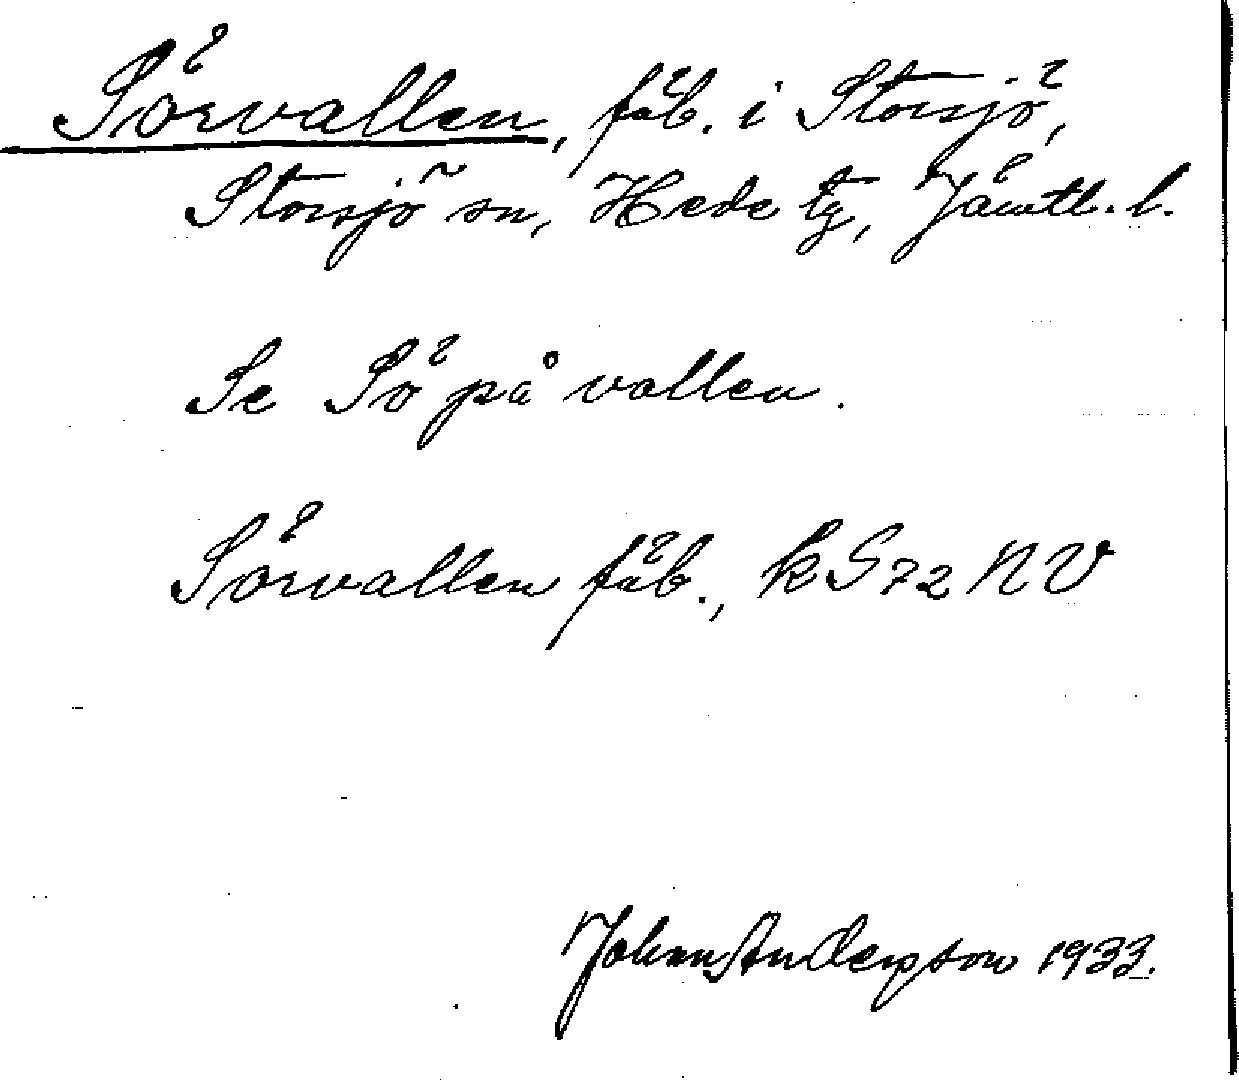 Sörvallen, fäb. i Storsjö,
Storsjö sn, Hede tg, Jämtl. l.
Se Sö på vallen.
Sörvallen fäb., k S 72 NV
Johan Anderson 1933.